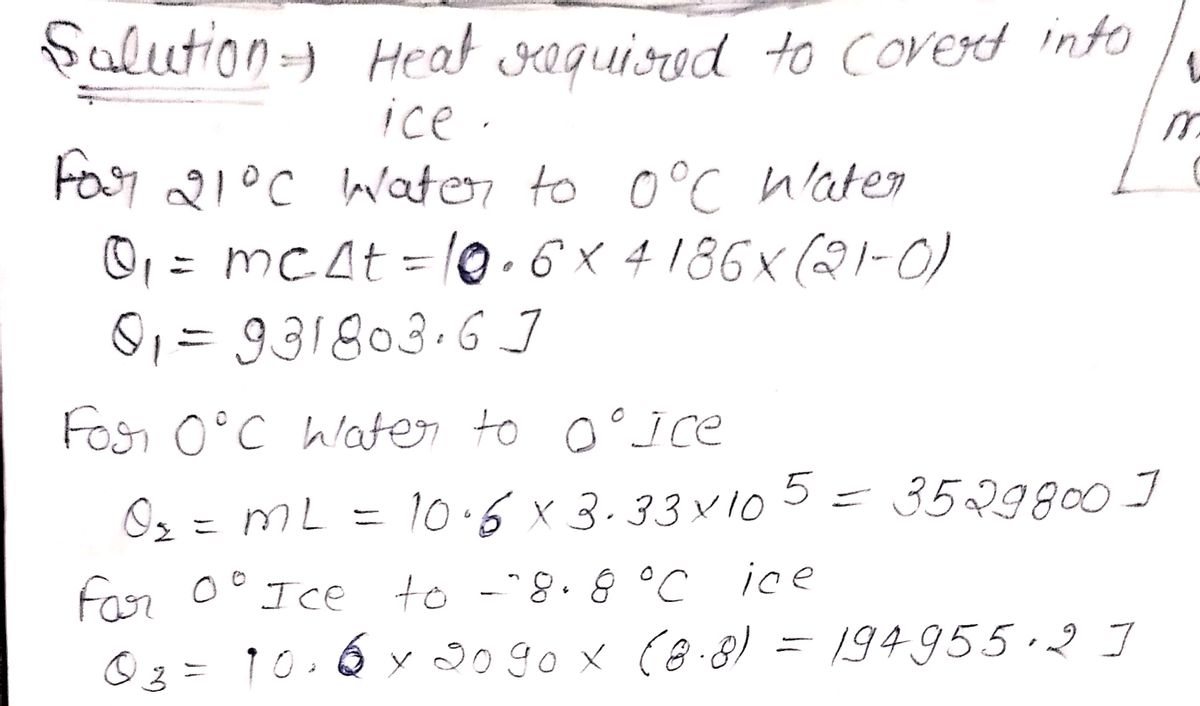 Solution → Heat required to Covert into
ice.
For 21°C Water to 0°C Water
Q₁ = mCΔt = 10.6 x 4186 x (21-0)
Q₁ = 931803.6 J
For 0°C Water to 0° Ice
Q₂ = mL = 10.6 x 3.33 x 10⁵ = 3529800 J
For 0° Ice to -8.8 °C ice
Q₃ = 10.6 x 2090 x (8.8) = 194955.2 J